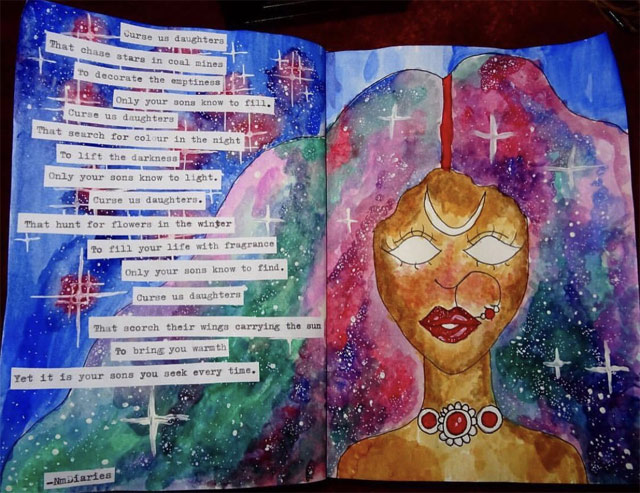 Curse us daughters
That chase stars in coal mines
To decorate the emptiness
Only your sons know to fill.
Curse us daughters
That search for colour in the night
To lift the darkness
Only your sons know to light.
Curse us daughters.
That hunt for flowers in the winter
To fill your life with fragrance
Only your sons know to find.
Curse us daughters
That scorch their wings carrying the sun
To bring you warmth
Yet it is your sons you seek every time.
—NmDiaries